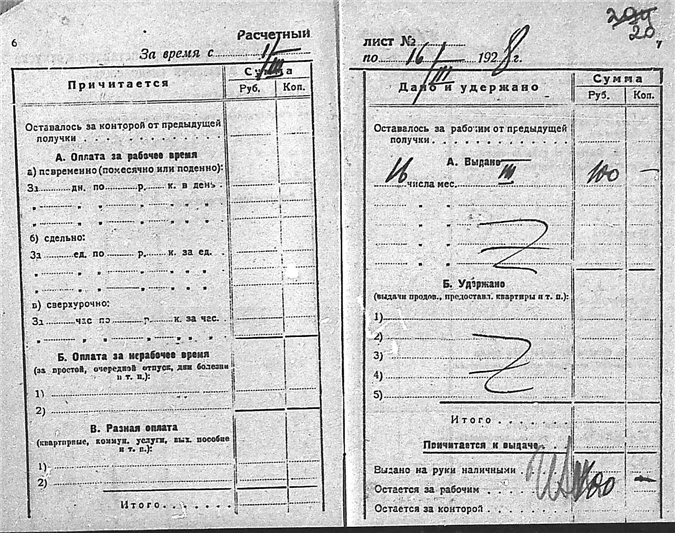 6
Расчетный
За время с 1/III
Причитается
Сумма
Руб. Коп.
Оставалось за конторой от предыдущей
получки
А. Оплата за рабочее время
а) повременно (помесячно или поденно):
За дн. по р. к. в день
" " " " " "
" " " " " "
б) сдельно:
За ед. по р. к. за ед.
" " " " " "
" " " " " "
в) сверхурочно:
За час по р. к. за час.
" " " " " "
Б. Оплата за нерабочее время
(за простой, очередной отпуск, дни болезни
и т. п.):
1)
2)
В. Разная оплата
(квартирные, коммун. услуги, вых. пособие
и т. п.):
1)
2)
Итого
20
7
лист №
по 16/III 1928 г.
Дано и удержано
Сумма
Руб. Коп.
Оставалось за рабочим от предыдущей
получки
А. Выдано
16 числа мес. III 100 —
" "
" "
" "
" "
Б. Удержано
(выдачи продов., предоставл. квартиры и т. п.):
1)
2)
3)
4)
5)
Итого
Причитается к выдаче
Выдано на руки наличными
100 —
Остается за рабочим
Остается за конторой